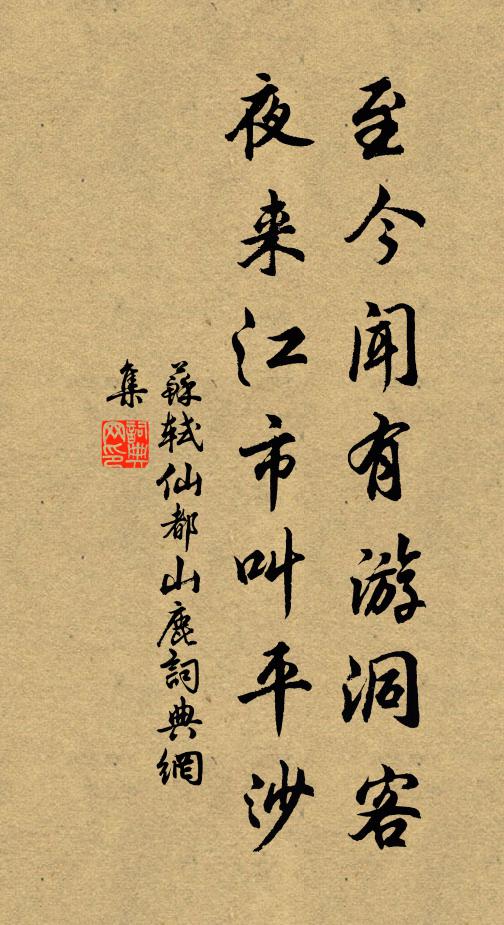 至今闻有游洞客
夜来江市叫平沙
蘇轼仙都山鹿詞典網
集
詞典网印